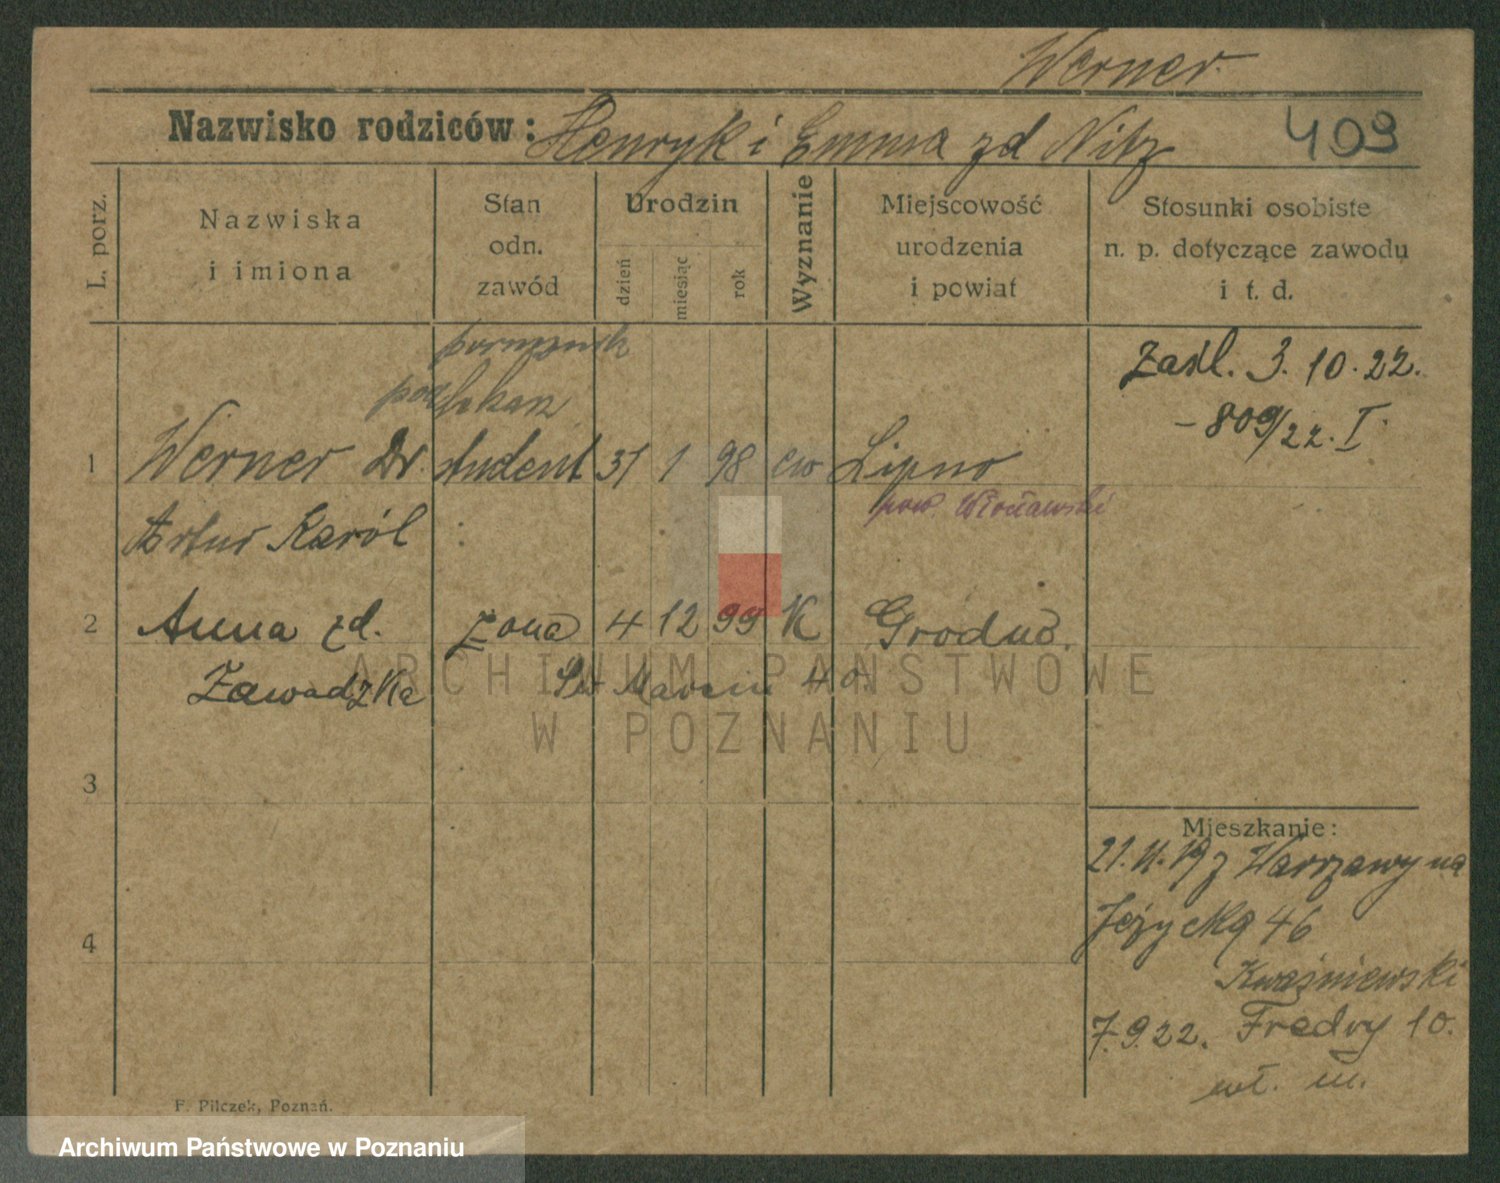 Werner
Nazwisko rodziców: Henryk i Emma zd Nitz
409
L. porz.
Nazwiska
i imiona
Stan
odn.
zawód
Urodzin
dzień
miesiąc
rok
Wyznanie
Miejscowość
urodzenia
i powiat
Stosunki osobiste
n. p. dotyczące zawodu
i t. d.
Zaśl. 3.10.22.
- 809/22. I
lekarz
1 Werner Dr. student 31 1 98 ew Lipno
pow. Włocławski
Artur Karól
2 Anna zd. żona 4 12 99 K Grodno.
Zawadzka Św Marcin 40.
ARCHIWUM PAŃSTWOWE
W POZNANIU
3
4
Mieszkanie:
21.11.19 z Warszawy na
Jeżycką 46
Kwaśniewski
7.9.22. Fredry 10.
wł. m.
F. Pilczek, Poznań.
Archiwum Państwowe w Poznaniu